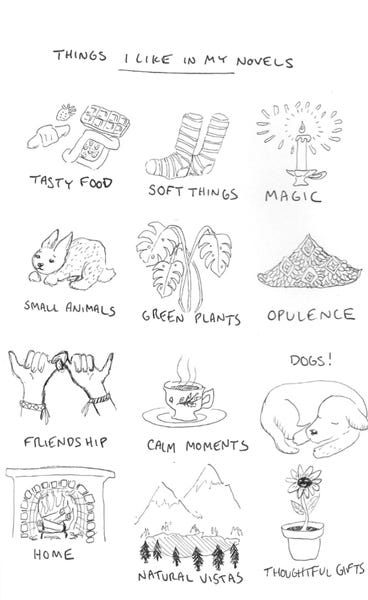 THINGS I LIKE IN MY NOVELS
TASTY FOOD
SOFT THINGS
MAGIC
SMALL ANIMALS
GREEN PLANTS
OPULENCE
DOGS!
FRIENDSHIP
CALM MOMENTS
HOME
NATURAL VISTAS
THOUGHTFUL GIFTS